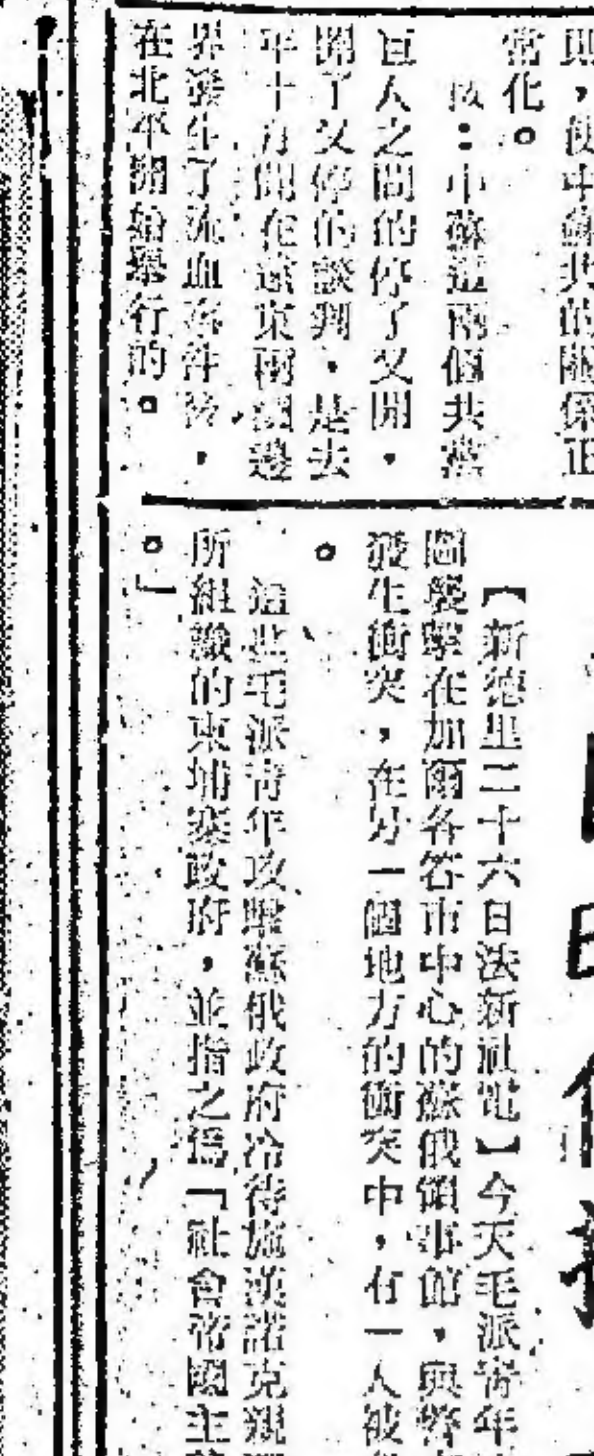 則，使中蘇共的關係正
常化。
按：中蘇這兩個共黨
巨人之間的停了又開，
開了又停的談判，是去
年十月間在遠東兩國邊
界發生了流血事件後，
在北平開始舉行的。
【新德里二十六日法新社電】今天毛派青年
圖襲擊在加爾各答市中心的蘇俄領事館，與警
發生衝突，在另一個地方的衝突中，有一人被
。
這些毛派青年攻擊蘇俄政府冷待施漢諾克親
所組織的柬埔寨政府，並指之爲「社會帝國主
。」